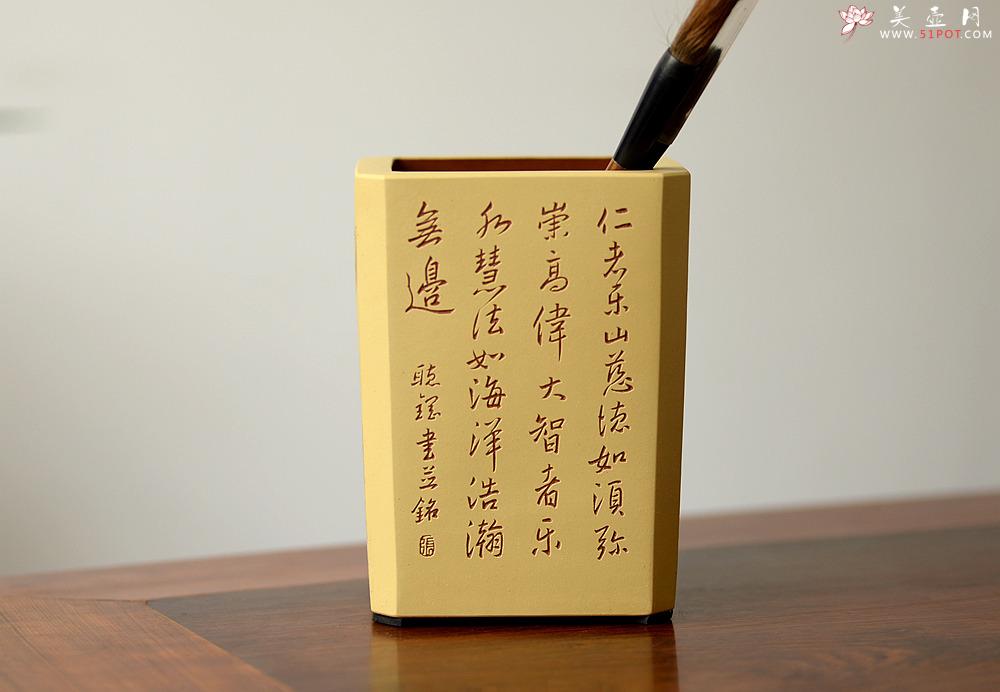 仁者乐山慈德如湏弥
崇高偉大智者乐
水慧法如海洋浩瀚
無邊
聴鐸書并銘
張
美壶网
WWW.51POT.COM